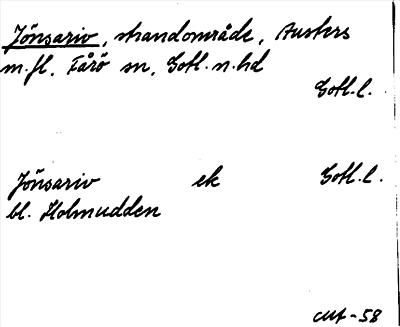 Jönsariv, strandområde, Austers
m.fl., Fårö sn, Gotl. n. hd
Gotl. l.
Jönsariv ek Gotl. l.
bl. Holmudden
-58